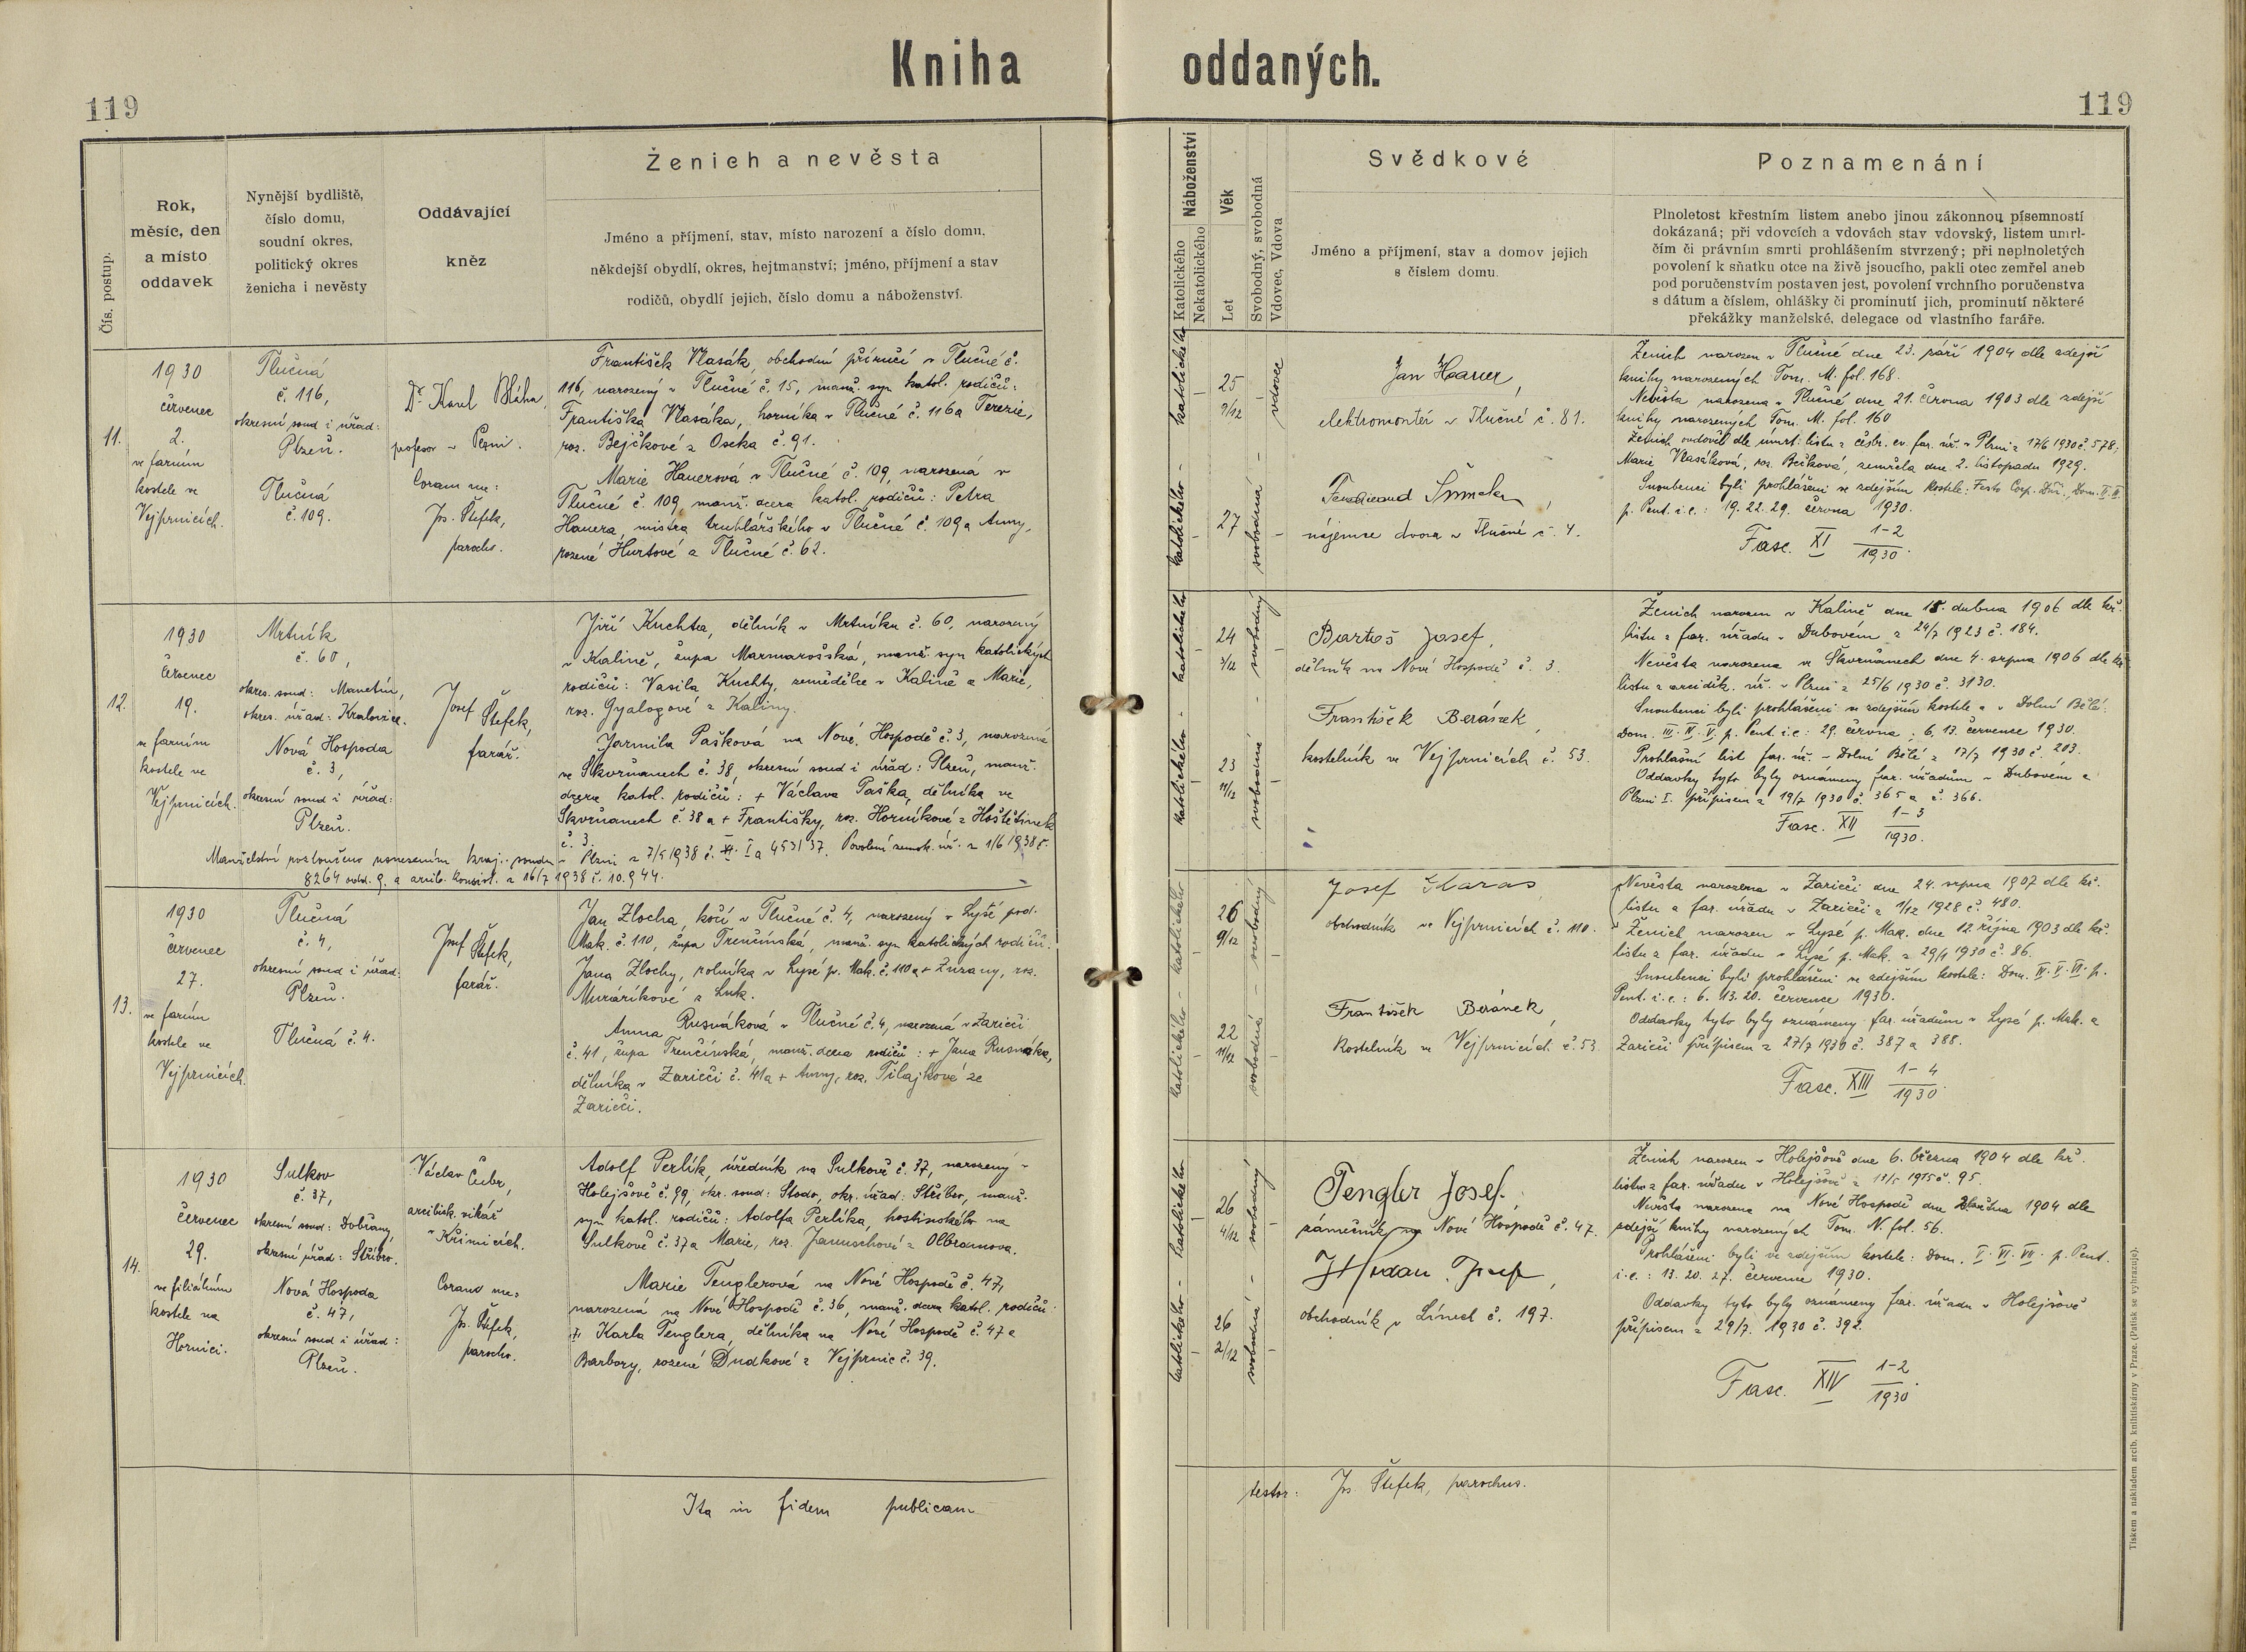 Kniha oddaných.
119
119
Čís. postup.
Rok,
měsíc, den
a místo
oddavek
Nynější bydliště,
číslo domu,
soudní okres,
politický okres
ženicha i nevěsty
Oddávající
kněz
Ženich a nevěsta
Jméno a příjmení, stav, místo narození a číslo domu,
někdejší obydlí, okres, hejtmanství; jméno, příjmení a stav
rodičů, obydlí jejich, číslo domu a náboženství.
Náboženství
Katolického
Nekatolického
Věk
Let
Svobodný, svobodná
Vdovec, Vdova
Svědkové
Jméno a příjmení, stav a domov jejich
s číslem domu.
Poznamenání
Plnoletost křestním listem anebo jinou zákonnou písemností
dokázaná; při vdovcích a vdovách stav vdovský, listem umrl-
čím či právním smrti prohlášením stvrzený; při neplnoletých
povolení k sňatku otce na živě jsoucího, pakli otec zemřel aneb
pod poručenstvím postaven jest, povolení vrchního poručenstva
s dátum a číslem, ohlášky či prominutí jich, prominutí některé
překážky manželské, delegace od vlastního faráře.
11.
1930
červenec
2.
ve farním
kostele ve
Vejprnicích.
Tlučná
č. 116,
okresní soud i úřad:
Plzeň.
Tlučná
č. 109.
Dr. Karel Bláha,
profesor v Plzni.
Coram me:
Jos. Štefek,
parochus.
František Vlasák, obchodní příručí v Tlučné č.
116, narozený v Tlučné č. 15, manž. syn katol. rodičů:
Františka Vlasáka, horníka v Tlučné č. 116 a Terezie,
roz. Bejčkové z Oseka č. 91.
Marie Hauerová v Tlučné č. 109, narozená v
Tlučné č. 109, manž. dcera katol. rodičů: Petra
Hauera, mistra truhlářského v Tlučné č. 109 a Anny,
rozené Hurtové z Tlučné č. 62.
katolického - katolického -
25
9/12
27
vdovec
svobodná -
Jan Hauer,
elektromontér v Tlučné č. 81.
Ferdinand Šimek,
nájemce dvora v Tlučné č. 4.
Ženich narozen v Tlučné dne 23. září 1904 dle zdejší
knihy narozených Tom. M. fol. 168.
Nevěsta narozena v Tlučné dne 21. června 1903 dle zdejší
knihy narozených Tom. M. fol. 160
Ženich ovdověl dle úmrt. listu z česbr. ev. far. úř. v Plzni z 17/6 1930 č. 578;
Marie Vlasáková, roz. Bečková, zemřela dne 2. listopadu 1929.
Snoubenci byli prohlášeni ve zdejším kostele: Festo Corp. Dni., Dom. II. III.
p. Pent. i. e.: 19. 22. 29. června 1930.
Fasc. XI 1-2/1930.
12.
1930
červenec
19.
ve farním
kostele ve
Vejprnicích.
Mrtník
č. 60,
okres. soud: Manetín,
okres. úřad: Kralovice.
Nová Hospoda
č. 3,
okresní soud i úřad:
Plzeň.
Josef Štefek,
farář.
Jiří Kuchta, dělník v Mrtníku č. 60, narozený
v Kalině, župa Marmarošská, manž. syn katolických
rodičů: Vasila Kuchty, zemědělce v Kalině a Marie,
roz. Gyalogové z Kaliny.
Jarmila Pašková na Nové Hospodě č. 3, narozená
ve Skvrňanech č. 38, okresní soud i úřad: Plzeň, manž.
dcera katol. rodičů: + Václava Paška, dělníka ve
Skvrňanech č. 38 a + Františky, roz. Horníkové z Hoštětinek
č. 3.
Manželství rozloučeno usnesením kraj. soudu v Plzni z 7/5 1938 č. 453/37. Povolení zemsk. úř. z 1/6 1938 č.
8264 odd. 9. a arcib. konsist. z 16/7 1938 č. 10.944.
katolického - katolického -
24
3/12
23
11/12
svobodný
svobodná
Bartoš Josef,
dělník na Nové Hospodě č. 3.
František Beránek,
kostelník ve Vejprnicích č. 53.
Ženich narozen v Kalině dne 18. dubna 1906 dle kř.
listu z far. úřadu v Dubovém z 24/7 1923 č. 184.
Nevěsta narozena ve Skvrňanech dne 4. srpna 1906 dle kř.
listu z arciděk. úř. v Plzni z 25/6 1930 č. 3130.
Snoubenci byli prohlášeni ve zdejším kostele a v Dolní Bělé:
Dom. III. IV. V. p. Pent. i. e: 29. června; 6. 13. července 1930.
Prohlašní list far. úř. v Dolní Bělé z 17/7 1930 č. 203.
Oddavky tyto byly oznámeny far. úřadům v Dubovém a
Plzni I. přípisem z 19/7 1930 č. 365 a č. 366.
Fasc. XII 1-3/1930.
13.
1930
červenec
27.
ve farním
kostele ve
Vejprnicích.
Tlučná
č. 4,
okresní soud i úřad:
Plzeň.
Tlučná č. 4.
Josef Štefek,
farář.
Jan Zlocha, kočí v Tlučné č. 4, narozený v Lysé pod.
Mak. č. 110, župa Trenčínská, manž. syn katolických rodičů:
Jana Zlochy, rolníka v Lysé p. Mak. č. 110 a + Zuzany, roz.
Muráríkové z Luk.
Anna Rusnáková v Tlučné č. 4, narozená v Zariečí
č. 41, župa Trenčínská, manž. dcera rodičů: + Jana Rusnáka,
dělníka v Zariečí č. 41 a + Anny, roz. Pilajkové ze
Zariečí.
katolického - katolického
26
9/12
22
11/12
svobodný
svobodná -
Josef Karas
obchodník ve Vejprnicích č. 110.
František Beránek,
Kostelník ve Vejprnicích č. 53
Nevěsta narozena v Zariečí dne 24. srpna 1907 dle kř.
listu z far. úřadu v Zariečí z 1/12 1928 č. 480.
Ženich narozen v Lysé p. Mak. dne 12. října 1903 dle kř.
listu z far. úřadu v Lysé p. Mak. z 29/4 1930 č. 86.
Snoubenci byli prohlášeni ve zdejším kostele: Dom. IV. V. VI. p.
Pent. i. e.: 6. 13. 20. července 1930.
Oddavky tyto byly oznámeny far. úřadům v Lysé p. Mak. a
Zariečí přípisem z 27/7 1930 č. 387 a 388.
Fasc. XIII 1-4/1930.
14.
1930
červenec
29.
ve filiálním
kostele na
Hornici.
Sulkov
č. 37,
okresní soud: Dobřany,
okresní úřad: Stříbro.
Nová Hospoda
č. 47,
okresní soud i úřad:
Plzeň.
Václav Čubr,
arcibisk. vikář
v Křimicích.
Coram me:
Jos. Štefek,
parochus.
Adolf Perlík, úředník na Sulkově č. 37, narozený v
Holejšově č. 99, okr. soud: Stodo, okr. úřad: Stříbro, manž.
syn katol. rodičů: Adolfa Perlíka, hostinského na
Sulkově č. 37 a Marie, roz. Januschové z Olbramova.
Marie Tenglerová na Nové Hospodě č. 47,
narozená na Nové Hospodě č. 36, manž. dcera katol. rodičů:
Karla Tenglera, dělníka na Nové Hospodě č. 47 a
Barbory, rozené Dudkové z Vejprnic č. 39.
katolického - katolického
26
4/12
26
2/12
svobodný
svobodná -
Tengler Josef,
zámečník na Nové Hospodě č. 47.
Josef,
obchodník v Línech č. 197.
Ženich narozen v Holejšově dne 6. března 1904 dle kř.
listu z far. úřadu v Holejšově z č. 95.
Nevěsta narozena na Nové Hospodě dne 1904 dle
zdejší knihy narozených Tom. N. fol. 56.
Prohlášeni byli ve zdejším kostele: Dom. V. VI. VII. p. Pent.
i. e.: 13. 20. 27. července 1930.
Oddavky tyto byly oznámeny far. úřadu v Holejšově
přípisem z 29/7. 1930 č. 392.
Fasc. XIV 1-2/1930.
Ita in fidem publicam
testor: Jos Štefek, parochus.
Tiskem a nákladem arcib. knihtiskárny v Praze. (Patisk se vyhrazuje).